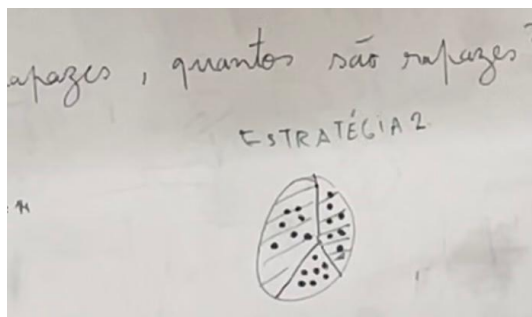 apazes, quantos são rapazes?
ESTRATÉGIA 2.